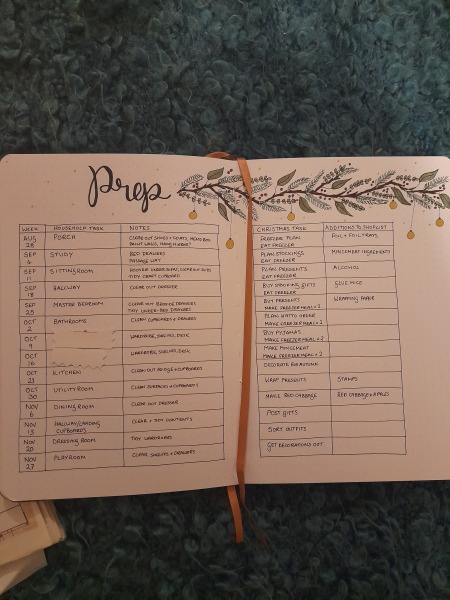 Prep
WEEK HOUSEHOLD TASK NOTES
AUG 28 PORCH CLEAR OUT SHOES + COATS, HEMP BOX
PAINT WALLS, HANG MIRROR?
SEP 4 STUDY BED DRAWERS
PASSAGE WAY
SEP 11 SITTING ROOM
TIDY CRAFT CUPBOARD
SEP 18 HALLWAY CLEAR OUT DRESSER
SEP 25 MASTER BEDROOM CLEAR OUT BEDSIDE DRAWERS
TIDY UNDER-BED DRAWERS
OCT 2 BATHROOMS CLEAN CUPBOARDS + DRAWERS
OCT 9 WARDROBE, SHELVES, DESK
OCT 16 WARDROBE, SHELVES, DESK
OCT 23 KITCHEN CLEAN OUT FRIDGE + CUPBOARDS
OCT 30 UTILITY ROOM CLEAR SURFACES + CUPBOARDS
NOV 6 DINING ROOM CLEAR OUT DRESSER
NOV 13 HALLWAY/LANDING CUPBOARDS CLEAR + TIDY CONTENTS
NOV 20 DRESSING ROOM TIDY WARDROBES
NOV 27 PLAYROOM CLEAR SHELVES + DRAWERS
CHRISTMAS TASK ADDITIONS TO SHOP LIST
FREEZER PLAN FOIL + FOIL TRAYS
EAT FREEZER
PLAN STOCKINGS MINCEMEAT INGREDIENTS
EAT FREEZER
PLAN PRESENTS ALCOHOL
EAT FREEZER
BUY STOCKING GIFTS SUGAR MICE
EAT FREEZER
BUY PRESENTS WRAPPING PAPER
MAKE FREEZER MEAL × 2
PLAN XMAS ORDER
MAKE FREEZER MEAL × 2
BUY PYJAMAS
MAKE FREEZER MEAL × 2
MAKE MINCEMEAT
MAKE FREEZER MEAL × 2
DECORATE
WRAP PRESENTS STAMPS
MAKE RED CABBAGE RED CABBAGE + APPLES
POST GIFTS
SORT OUTFITS
GET DECORATIONS OUT